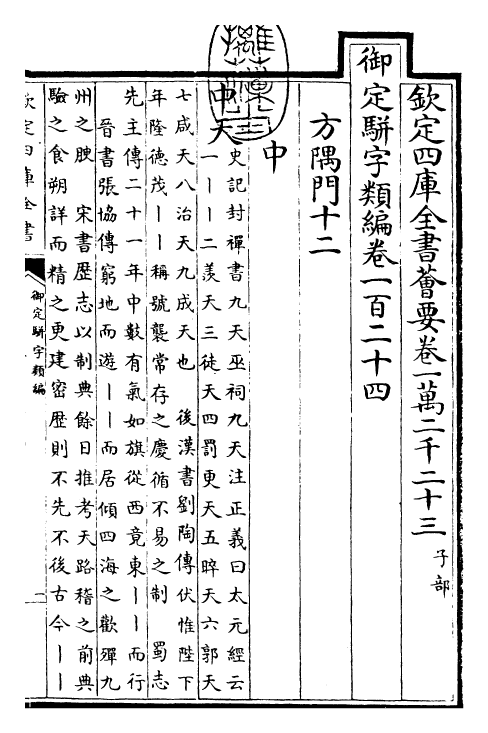 欽定四庫全書薈要卷一萬二千二十三 子部
御定駢字類編卷一百二十四
方隅門十二
中
中天 史記封禪書九天巫祠九天注正義曰太元經云
一丨丨二羨天三徒天四罰更天五晬天六郭天
七咸天八治天九成天也 後漢書劉陶傳伏惟陛下
年隆德茂丨丨稱號襲常存之慶循不易之制 蜀志
先主傳二十一年中數有氣如旗從西竟東丨丨而行
晉書張協傳窮地而遊丨丨而居傾四海之歡殫九
州之腴 宋書歷志以制典餘日推考天路稽之前典
驗之食朔詳而精之更建密歷則不先不後古今丨丨
欽定四庫全書
御定駢字類編